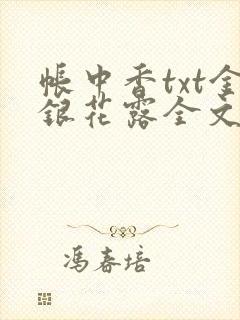 帐中香txt金
银花露全文
冯春培